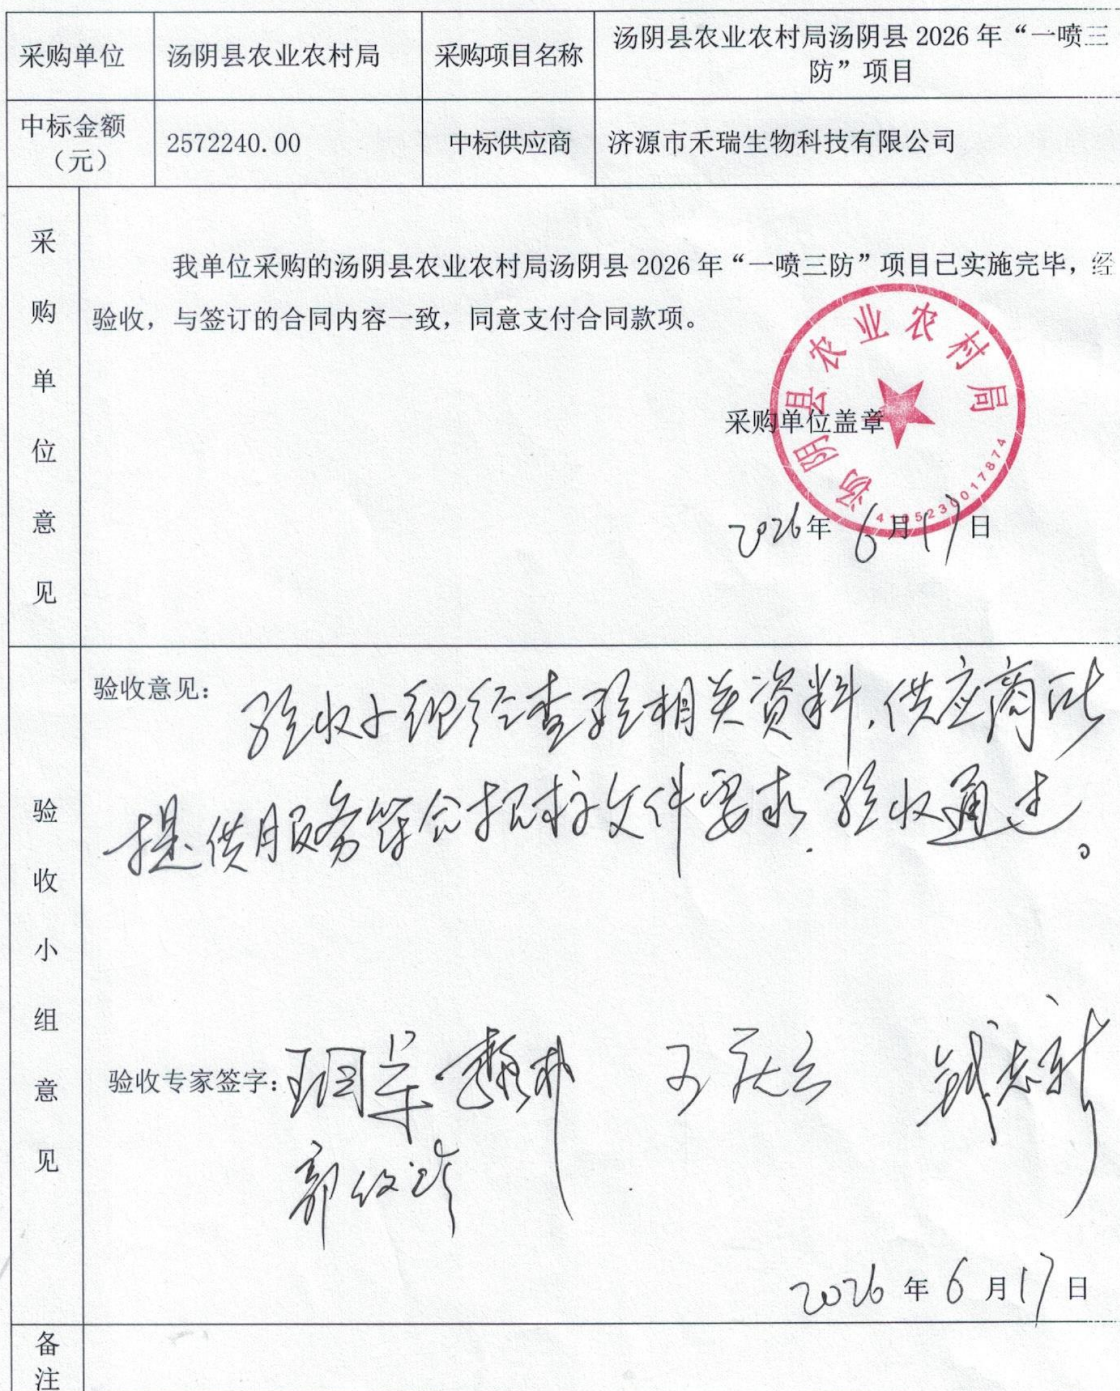 采购单位 汤阴县农业农村局 采购项目名称 汤阴县农业农村局汤阴县 2026 年“一喷三
防”项目
中标金额
（元） 2572240.00 中标供应商 济源市禾瑞生物科技有限公司
采购单位意见
我单位采购的汤阴县农业农村局汤阴县 2026 年“一喷三防”项目已实施完毕，经
验收，与签订的合同内容一致，同意支付合同款项。
汤阴县农业农村局
采购单位盖章
4105230017874
2026年 6月17日
验收小组意见
验收意见：验收小组经查验相关资料，供应商所
提供服务符合招标文件要求，验收通过。
验收专家签字：
2026 年 6 月 17 日
备注